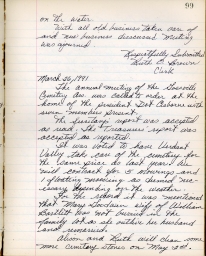 99
on the water.
With all old business taken care of
and new business discussed. Meeting
was ajourned
Respectfully Submitted
Ruth E. Brown
Clerk
March 26, 1991
The annual meeting of the
Cemetery Ass. was called to order at the
home of the president Dot Osborn with
seven members present.
The Secretary's report was accepted
as read. The Treasurer's report was
accepted as reported.
It was voted to have Verdant
Valley take care of the cemetery for
the same price as last year. The
contract for 5 mowings and
1 mowing as deemed nec-
essary depending on the weather.
In the it was mentioned
that Mary Goodwin wife of William
Bartlett was not buried in the
family plot as was her husband
and
Alison and Ruth will clean some
more cemetery stones on May 12th.